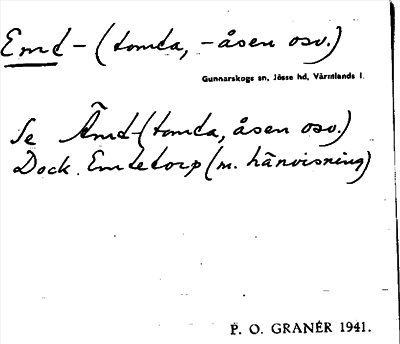 Emd- (tomta, -åsen osv.)
Gunnarskogs sn, Jösse hd, Värmlands l.
Se Ämd-(tomta, åsen osv.)
Dock. Emtetorp (m. hänvisning)
P. O. GRANÉR 1941.